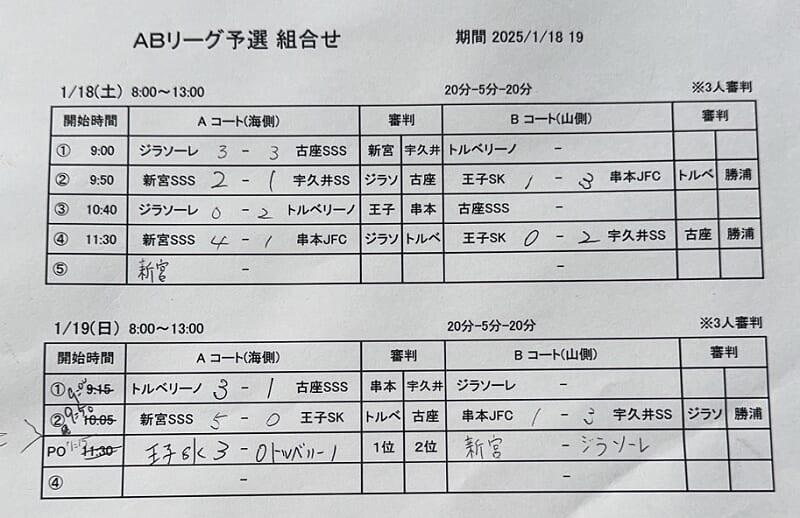 ABリーグ予選 組合せ 期間 2025/1/18 19
1/18(土) 8:00～13:00 20分-5分-20分 ※3人審判
開始時間 Aコート(海側) 審判 Bコート(山側) 審判
① 9:00 ジラソーレ 3 - 3 古座SSS 新宮 宇久井 トルベリーノ -
② 9:50 新宮SSS 2 - 1 宇久井SS ジラソ 古座 王子SK 1 - 3 串本JFC トルベ 勝浦
③ 10:40 ジラソーレ 0 - 2 トルベリーノ 王子 串本 古座SSS -
④ 11:30 新宮SSS 4 - 1 串本JFC ジラソ トルベ 王子SK 0 - 2 宇久井SS 古座 勝浦
⑤ 新宮 - -
1/19(日) 8:00～13:00 20分-5分-20分 ※3人審判
開始時間 Aコート(海側) 審判 Bコート(山側) 審判
① 9:15 9:00 トルベリーノ 3 - 1 古座SSS 串本 宇久井 ジラソーレ -
② 10:05 9:50 新宮SSS 5 - 0 王子SK トルベ 古座 串本JFC 1 - 3 宇久井SS ジラソ 勝浦
PO 11:30 王子SK 3 - 0 トルベリーノ 1位 2位 新宮 - ジラソーレ
④ - -